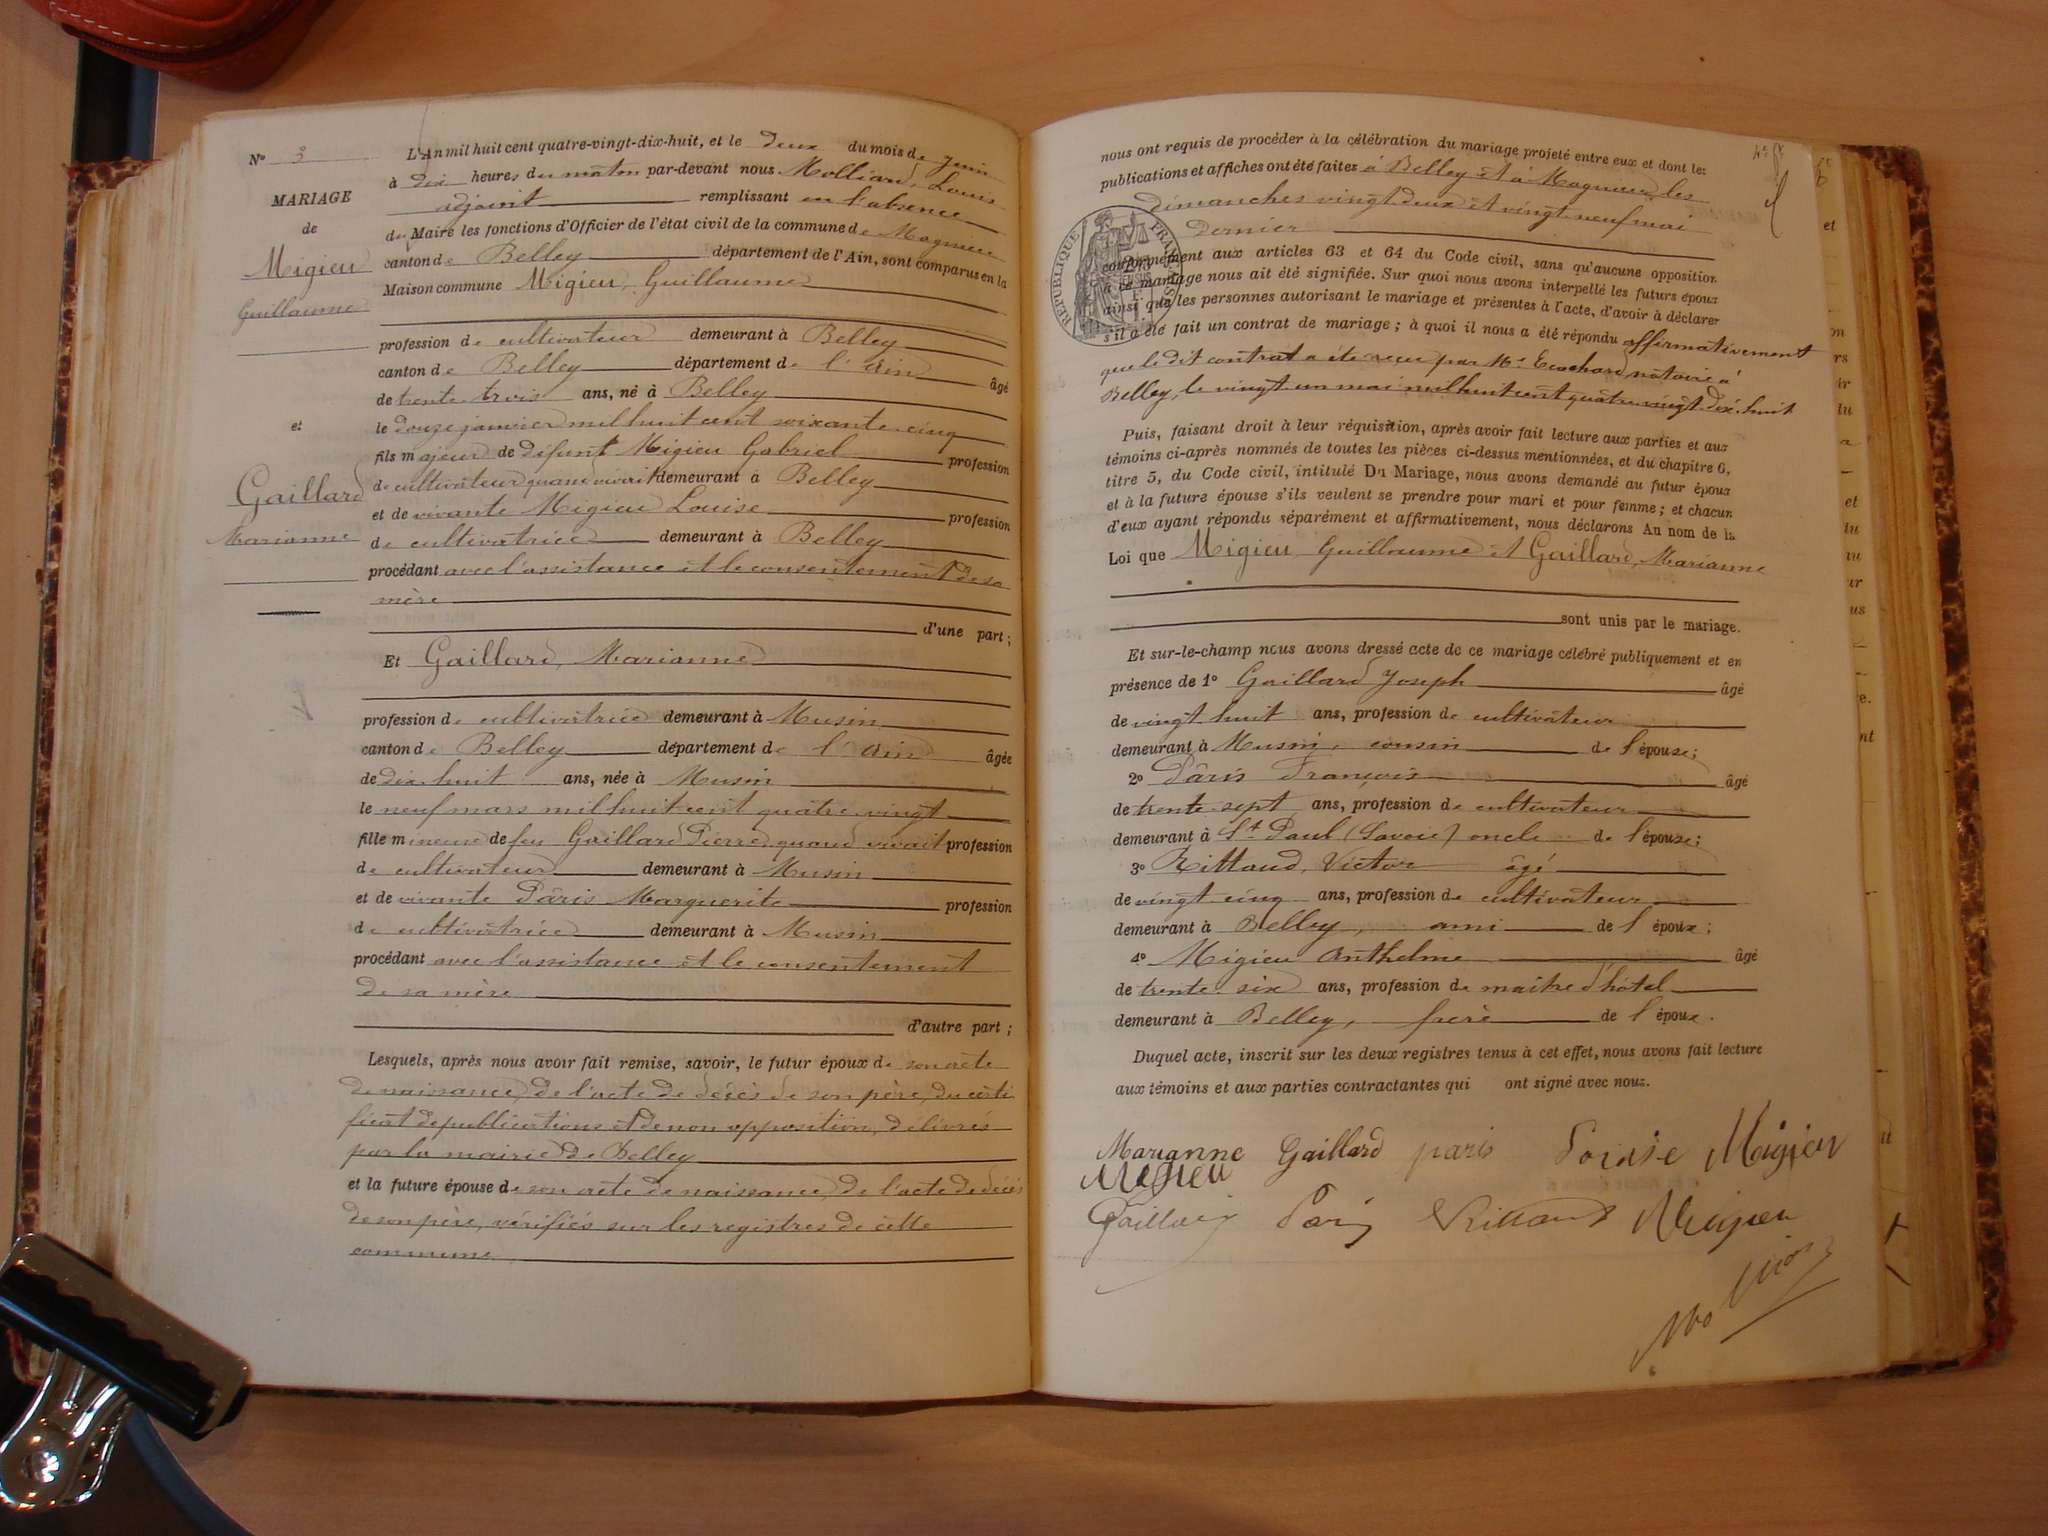 N° 3
MARIAGE
de
Migieu
Guillaume
et
Gaillard
Marianne
L'An mil huit cent quatre-vingt-dix-huit, et le deux du mois de Juin
à dix heures du matin par-devant nous Molliard, Louis
adjoint remplissant en l'absence
du Maire les fonctions d'Officier de l'état civil de la commune de Magnieu
canton de Belley département de l'Ain, sont comparus en la
Maison commune Migieu, Guillaume
profession de cultivateur demeurant à Belley
canton de Belley département de l'ain âgé
de trente trois ans, né à Belley
le douze janvier mil huit cent soixante-cinq
fils majeur de défunt Migieu Gabriel profession
de cultivateur quand vivait demeurant à Belley
et de vivante Migieu Louise profession
de cultivatrice demeurant à Belley
procédant avec l'assistance et le consentement de sa
mère
d'une part;
Et Gaillard, Marianne
profession de cultivatrice demeurant à Musin
canton de Belley département de l'ain âgée
de dix huit ans, née à Musin
le neuf mars mil huit cent quatre-vingt
fille mineure de feu Gaillard Pierre quand vivait profession
de cultivateur demeurant à Musin
et de vivante Pâris Marguerite profession
de cultivatrice demeurant à Musin
procédant avec l'assistance et le consentement
de sa mère
d'autre part;
Lesquels, après nous avoir fait remise, savoir, le futur époux de son acte
de naissance, de l'acte de décès de son père, du certi
ficat de publications et de non opposition, délivrés
par la mairie de Belley
et la future épouse de son acte de naissance, de l'acte de décès
de son père, vérifiés sur les registres de cette
commune
nous ont requis de procéder à la célébration du mariage projeté entre eux et dont les
publications et affiches ont été faites à Belley et à Magnieu les
dimanches vingt deux et vingt neuf mai
dernier
RÉPUBLIQUE FRANÇAISE
conformément aux articles 63 et 64 du Code civil, sans qu'aucune opposition
à ce mariage nous ait été signifiée. Sur quoi nous avons interpellé les futurs époux
ainsi que les personnes autorisant le mariage et présentes à l'acte, d'avoir à déclarer
s'il a été fait un contrat de mariage; à quoi il nous a été répondu affirmativement
que le dit contrat a été reçu par Me Ecochard notaire à
Belley, le vingt un mai mil huit cent quatre vingt dix-huit
Puis, faisant droit à leur réquisition, après avoir fait lecture aux parties et aux
témoins ci-après nommés de toutes les pièces ci-dessus mentionnées, et du chapitre 6,
titre 5, du Code civil, intitulé Du Mariage, nous avons demandé au futur époux
et à la future épouse s'ils veulent se prendre pour mari et pour femme; et chacun
d'eux ayant répondu séparément et affirmativement, nous déclarons Au nom de la
Loi que Migieu Guillaume et Gaillard, Marianne
sont unis par le mariage.
Et sur-le-champ nous avons dressé acte de ce mariage célébré publiquement et en
présence de 1° Gaillard Joseph âgé
de vingt huit ans, profession de cultivateur
demeurant à Musin, cousin de l'épouse;
2° Pâris François âgé
de trente-sept ans, profession de cultivateur
demeurant à St Paul (Savoie) oncle de l'épouse;
3° Rittaud, Victor âgé
de vingt cinq ans, profession de cultivateur
demeurant à Belley, ami de l'époux;
4° Migieu Anthelme âgé
de trente-six ans, profession de maître d'hôtel
demeurant à Belley, frère de l'époux.
Duquel acte, inscrit sur les deux registres tenus à cet effet, nous avons fait lecture
aux témoins et aux parties contractantes qui ont signé avec nous.
Marianne Gaillard paris Louise Migieu
Migieu
Gaillard Paris Rittaud Migieu